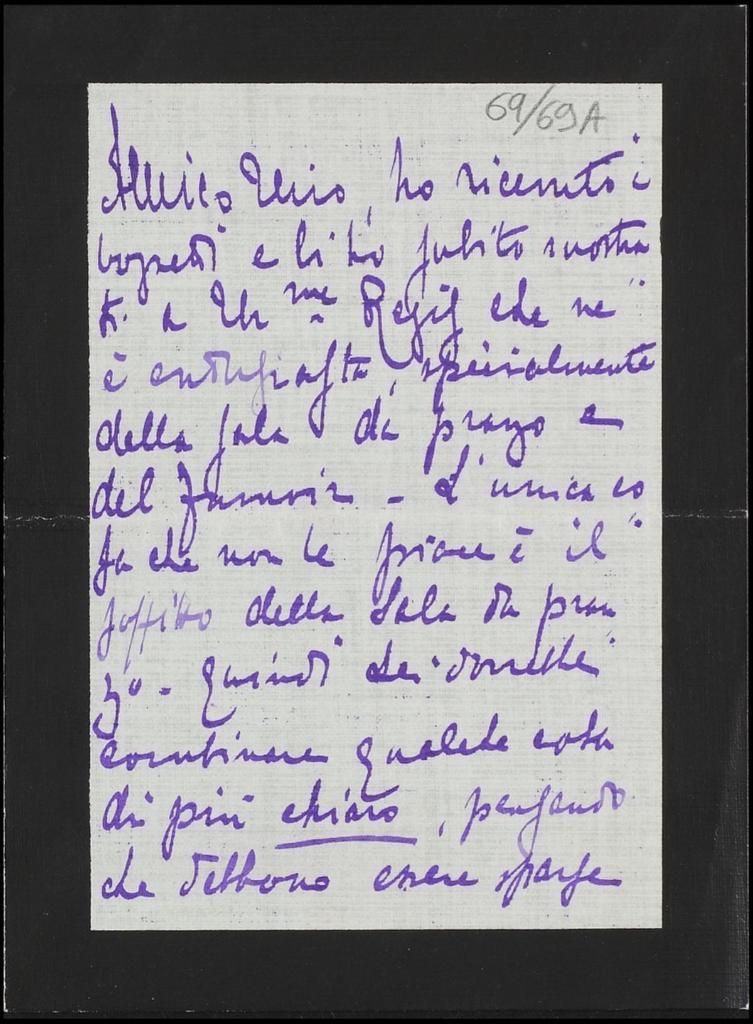 69/69A
Amico mio, ho ricevuto i
bozzetti e li ho subito mostra
ti a M me Regis che ne
è entusiasta, specialmente
della sala da pranzo e
del fumoir - L'unica co
sa che non le piace è il
soffitto della Sala da pran
zo - quindi Lei dovrebbe
combinare qualche cosa
di più chiaro, pensando
che debbono essere sparse